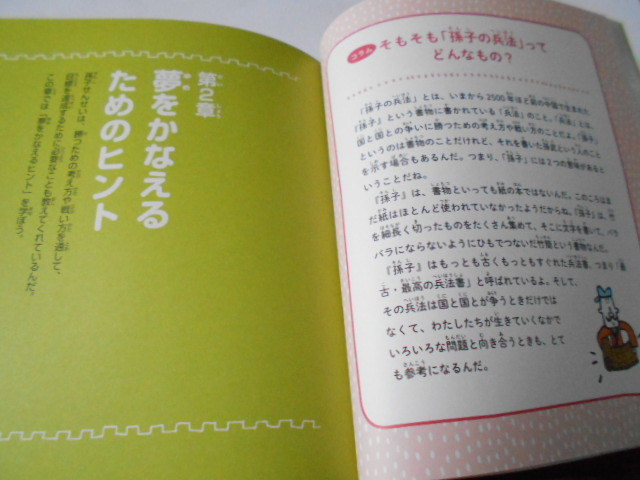 コラム
そもそも「孫子の兵法」って
どんなもの？
「孫子の兵法」とは、いまから2500年ほど前の中国で生まれた
『孫子』という書物に書かれている「兵法」のこと。「兵法」とは、
国と国との争いに勝つための考え方や戦い方のことだよ。「孫子」
というのは書物のことだけれど、それを書いた孫武という人のこと
を示す場合もあるんだ。つまり、「孫子」には2つの意味があると
いうことだね。
『孫子』は、書物といっても紙の本ではないんだ。このころはま
だ紙はほとんど使われていなかったようだからね。『孫子』は、竹
を細長く切ったものをたくさん集めて、そこに文字を書いて、バラ
バラにならないようにひもでつないだ竹簡という書物なんだ。
『孫子』はもっとも古くもっともすぐれた兵法書、つまり「最
古・最高の兵法書」と呼ばれているよ。そして、
その兵法は国と国とが争うときだけでは
なくて、わたしたちが生きていくなかで
いろいろな問題と向き合うときも、とて
も参考になるんだ。
第2章
夢をかなえる
ためのヒント
孫子せんせいは、勝つための考え方や戦い方を通して、
目標を達成するために必要なことも教えてくれているんだ。
この章では「夢をかなえるヒント」を学ぼう。